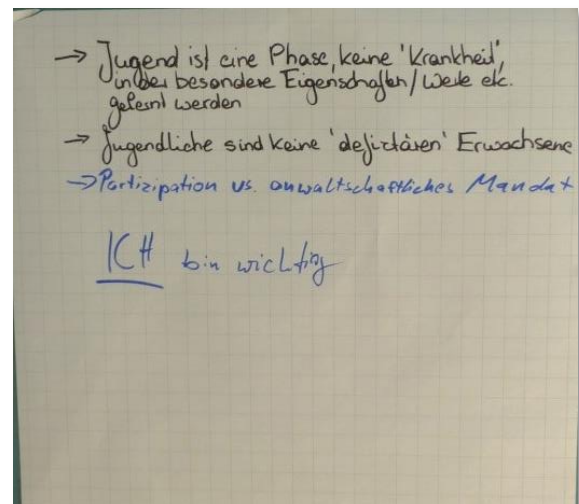 → Jugend ist eine Phase, keine 'Krankheit',
in der besondere Eigenschaften / Werte etc.
gelernt werden
→ Jugendliche sind keine 'defizitären' Erwachsene
→ Partizipation vs. anwaltschaftliches Mandat
ICH bin wichtig